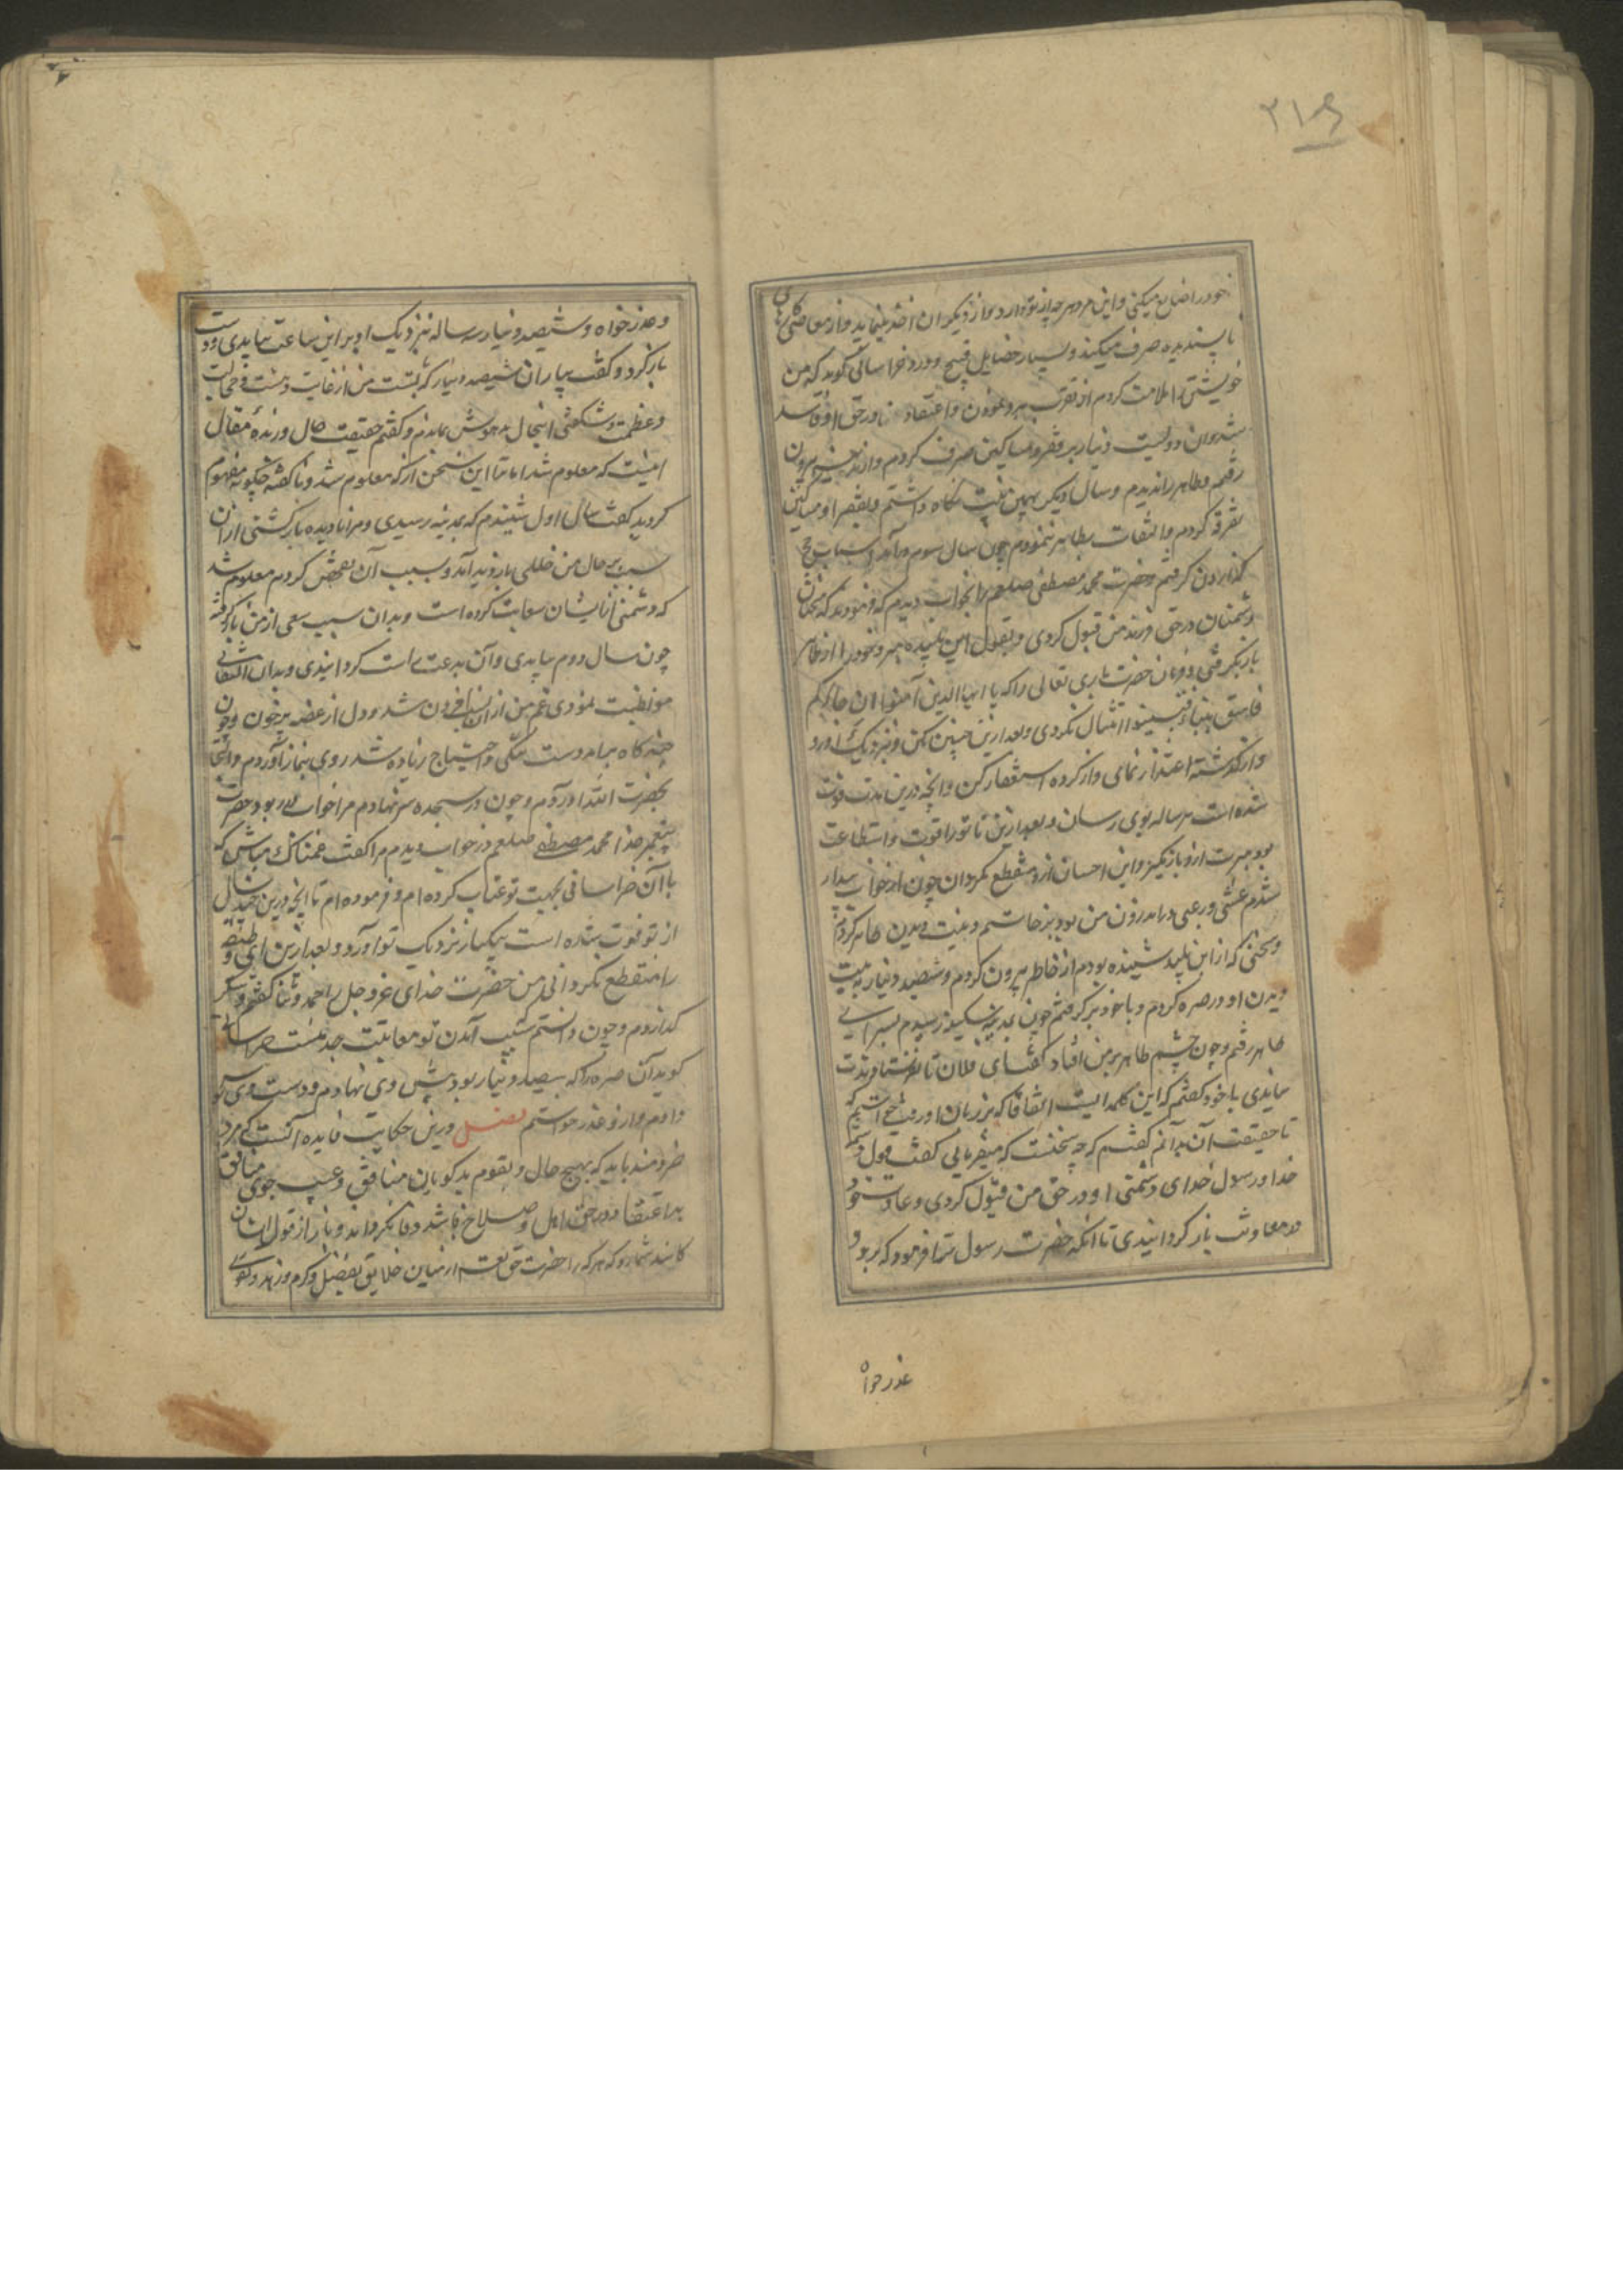 ۲۱۶
خود را ضایع میکنی و این مرد هر چه از تو و از دیگران اخذ مینماید در معاصی
ناپسندیده صرف میکند و بسیار خصایل قبیح وی خراسانی گوید که من
خویشتن را ملامت کردم از تقرب بدو نمودن و اعتقاد در حق او فاسد
شد و آن دویست دینار بر فقرا و مساکین صرف کردم و از مدینه بیرون
رفتم و طاهر را ندیدم و سال دیگر بهمین نیت نگاه داشتم و بفقرا و مساکین
تفرقه کردم و التفات بطاهر ننمودم چون سال سوم در آمد و اسباب حج
گذاردن گرفتم حضرت محمد مصطفی صلعم را بخواب دیدم که فرمودند که سخن
دشمنان در حق فرزند من قبول کردی و بقول این پلید بر خود را از طاهر
باز گرفتی و فرمان حضرت باری تعالی را که یا ایها الذین آمنوا ان جاءکم
فاسق بنباء فتبینوا امتثال نکردی و بعد ازین چنین مکن و نزدیک او رو
و از گذشته اعتذار نمای و از کرده استغفار کن و آنچه درین مدت فوت
شده است هر ساله بوی رسان و بعد ازین تا تو را قوت و استطاعت
بود مبرت ازو باز مگیر و این احسان ازو منقطع مگردان چون از خواب بیدار
شدم غشی و رعبی در اندرون من بود برخاستم و نیت دیدن طاهر کردم
و سخنی که از این پلید شنیده بودم از خاطر بیرون کردم و ششصد دینار به نیت
دیدن او در صره کردم و با خود بر گرفتم چون بمدینه سکینه رسیدم بسرای
طاهر رفتم و چون چشم طاهر بر من افتاد گفت ای فلان تا نفرستادندت
نیامدی با خود گفتم که این کلمه ایست اتفاقا که بر زبان او رفت
تا حقیقت آن بدانم گفتم که چه سخنست که میفرمایی گفت قول
خدا و رسول خدای دشمنی او در حق من قبول کردی و عادت خود
در معاونت باز گردانیدی تا آنکه حضرت رسول تو را فرمود که برو و
عذر خواه
و عذر خواه و ششصد دینار سه ساله نزدیک او بر این ساعت بیامدی و دست
باز کرد و گفت بیار آن ششصد دینار که بتست من از غایت دهشت و خجالت
و عظمت و شگفتی اینحال مدهوش بماندم و گفتم حقیقت حال و زبده مقال
اینست که معلوم شد اما تو را این سخن از که معلوم شد و ناگفته چگونه مفهوم
گردید گفت سال اول شنیدم که بمدینه رسیدی و مرا نادیده بازگشتی از آن
سبب بر حال من خللی بازدید آمد و سبب آن تفحص کردم معلوم شد
که دشمنی از ایشان سعایت کرده است و بدان سبب سعی از من باز گرفته
چون سال دوم بیامدی و آن بدعت راست گردانیدی و بدان التفات
مواظبت نمودی غم من از آن افزون شد و دل از غصه پر خون و چون
چند گاه بیامد دست تنگی و احتیاج زیاده شد روی بنماز آوردم و التجا
بحضرت الله در آوردم و چون در سجده سر نهادم مرا خواب در ربود حضرت
پیغمبر خدا محمد مصطفی صلعم در خواب دیدم مرا گفت غمناک مباش که
با آن خراسانی بجهت تو عتاب کرده ام و فرموده ام تا آنچه درین چند سال
از تو فوت شده است بیکبار نزدیک تو آورد و بعد ازین آن وظیفه
را منقطع نگرداند من حضرت خدای عز و جل را حمد و ثنا گفتم و شکر
گذاردم و چون دانستم سبب آمدن تو معاتبت جد منست خراسانی
گوید آن صره را که سیصد دینار بود پیش وی نهادم و دست وی بوسه
دادم و از او عذر خواستم فصل درین حکایت فایده آنست که مرد
خردمند باید که بهیچ حال و بقوم بدگویان منافق و عیب جوی منافق
بد اعتقاد در حق اهل صلاح نباشد و فا نگرداند و باز از قول ایشان
کاسد شمارد که هر که را حضرت حق تعالی از میان خلایق بفضل و کرم و زهد و تقوی